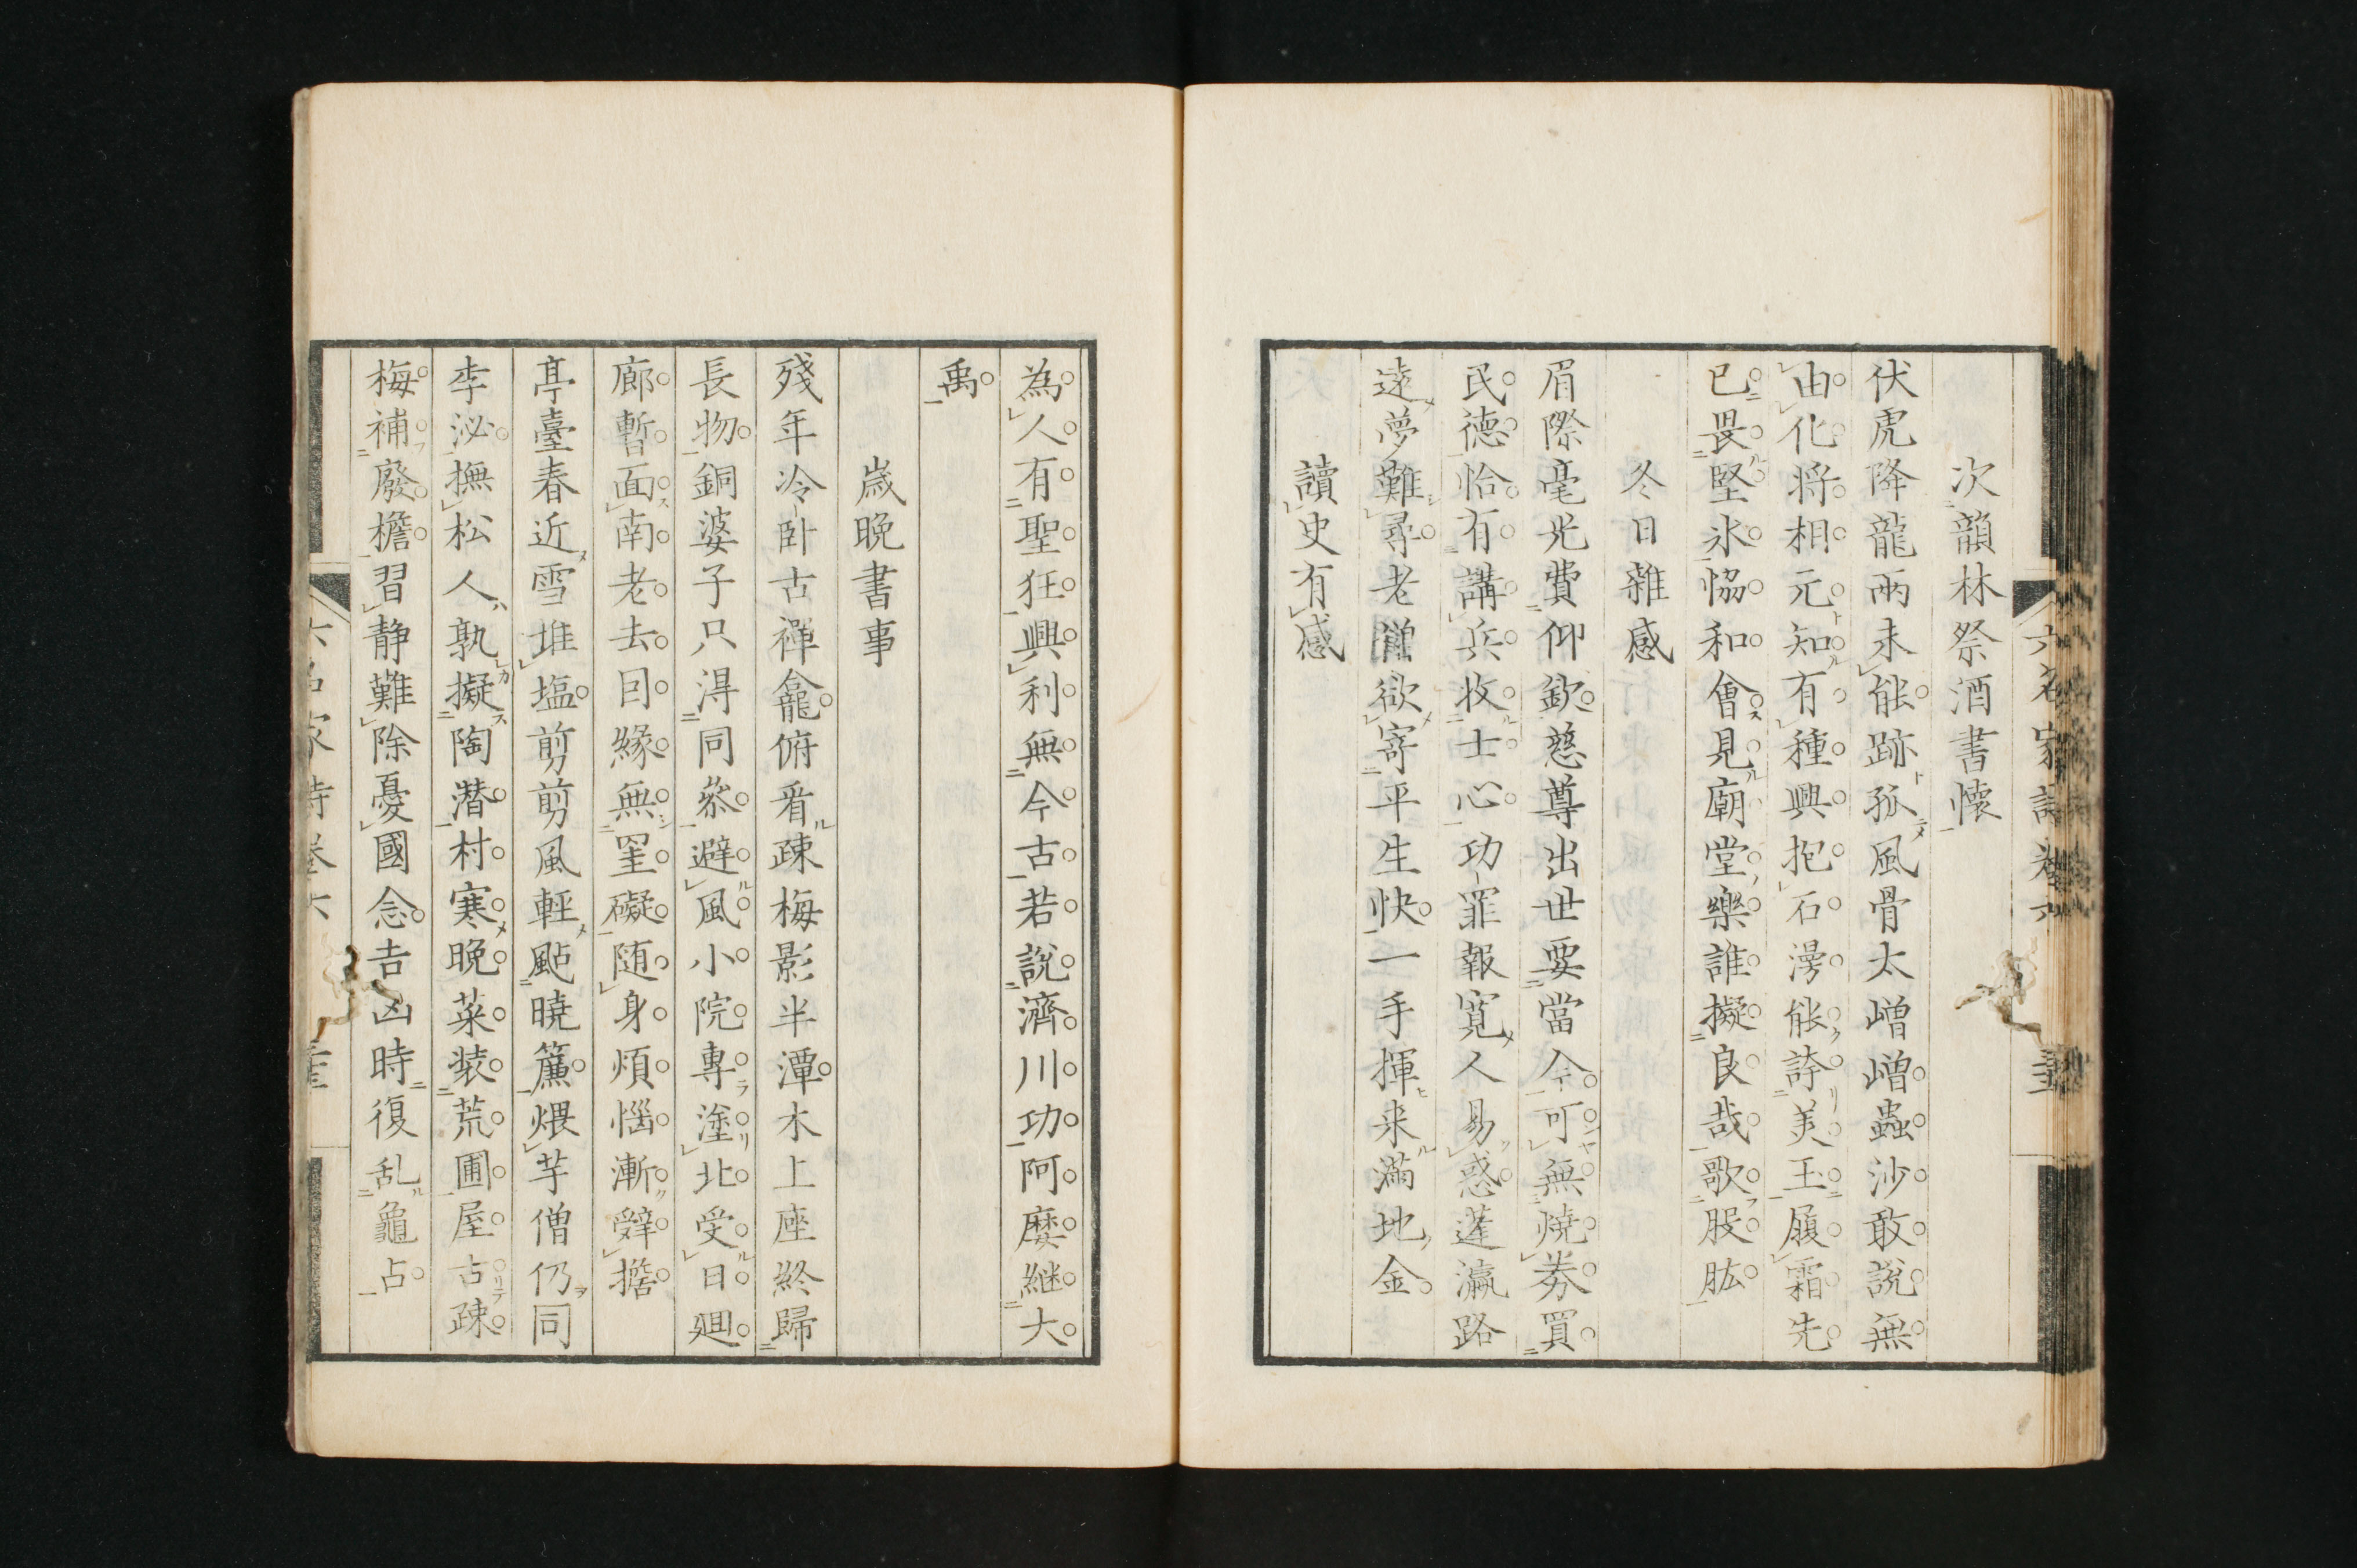 次韻林祭酒書懷
伏虎降龍兩未能跡孤風骨太嶒嶒蟲沙敢說無
由化將相元知有種興抱石漫能誇美玉履霜先
已畏堅氷恊和會見廟堂樂誰擬良哉歌股肱
冬日雜感
眉際毫光費仰欽慈尊出世要當今可無燒券買
民德恰有講兵收士心功罪報寬人易惑蓬瀛路
遠夢難尋老僧欲寄平生快一手揮来滿地金
讀史有感
為人有聖狂興利無今古若說濟川功阿麼継大
禹
歳晩書事
殘年冷卧古禪龕俯看疎梅影半潭木上座終歸
長物銅婆子只淂同叅避風小院專塗北受日廻
廊暫面南老去囙緣無罣礙随身煩惱漸辤擔
亭臺春近雪堆塩剪剪風輕颭曉簾煨芋僧仍同
李泌撫松人孰擬陶潜村寒晩菜装荒圃屋古疎
梅補廢檐習静難除憂國念吉凶時復乱龜占
六名家詩卷六